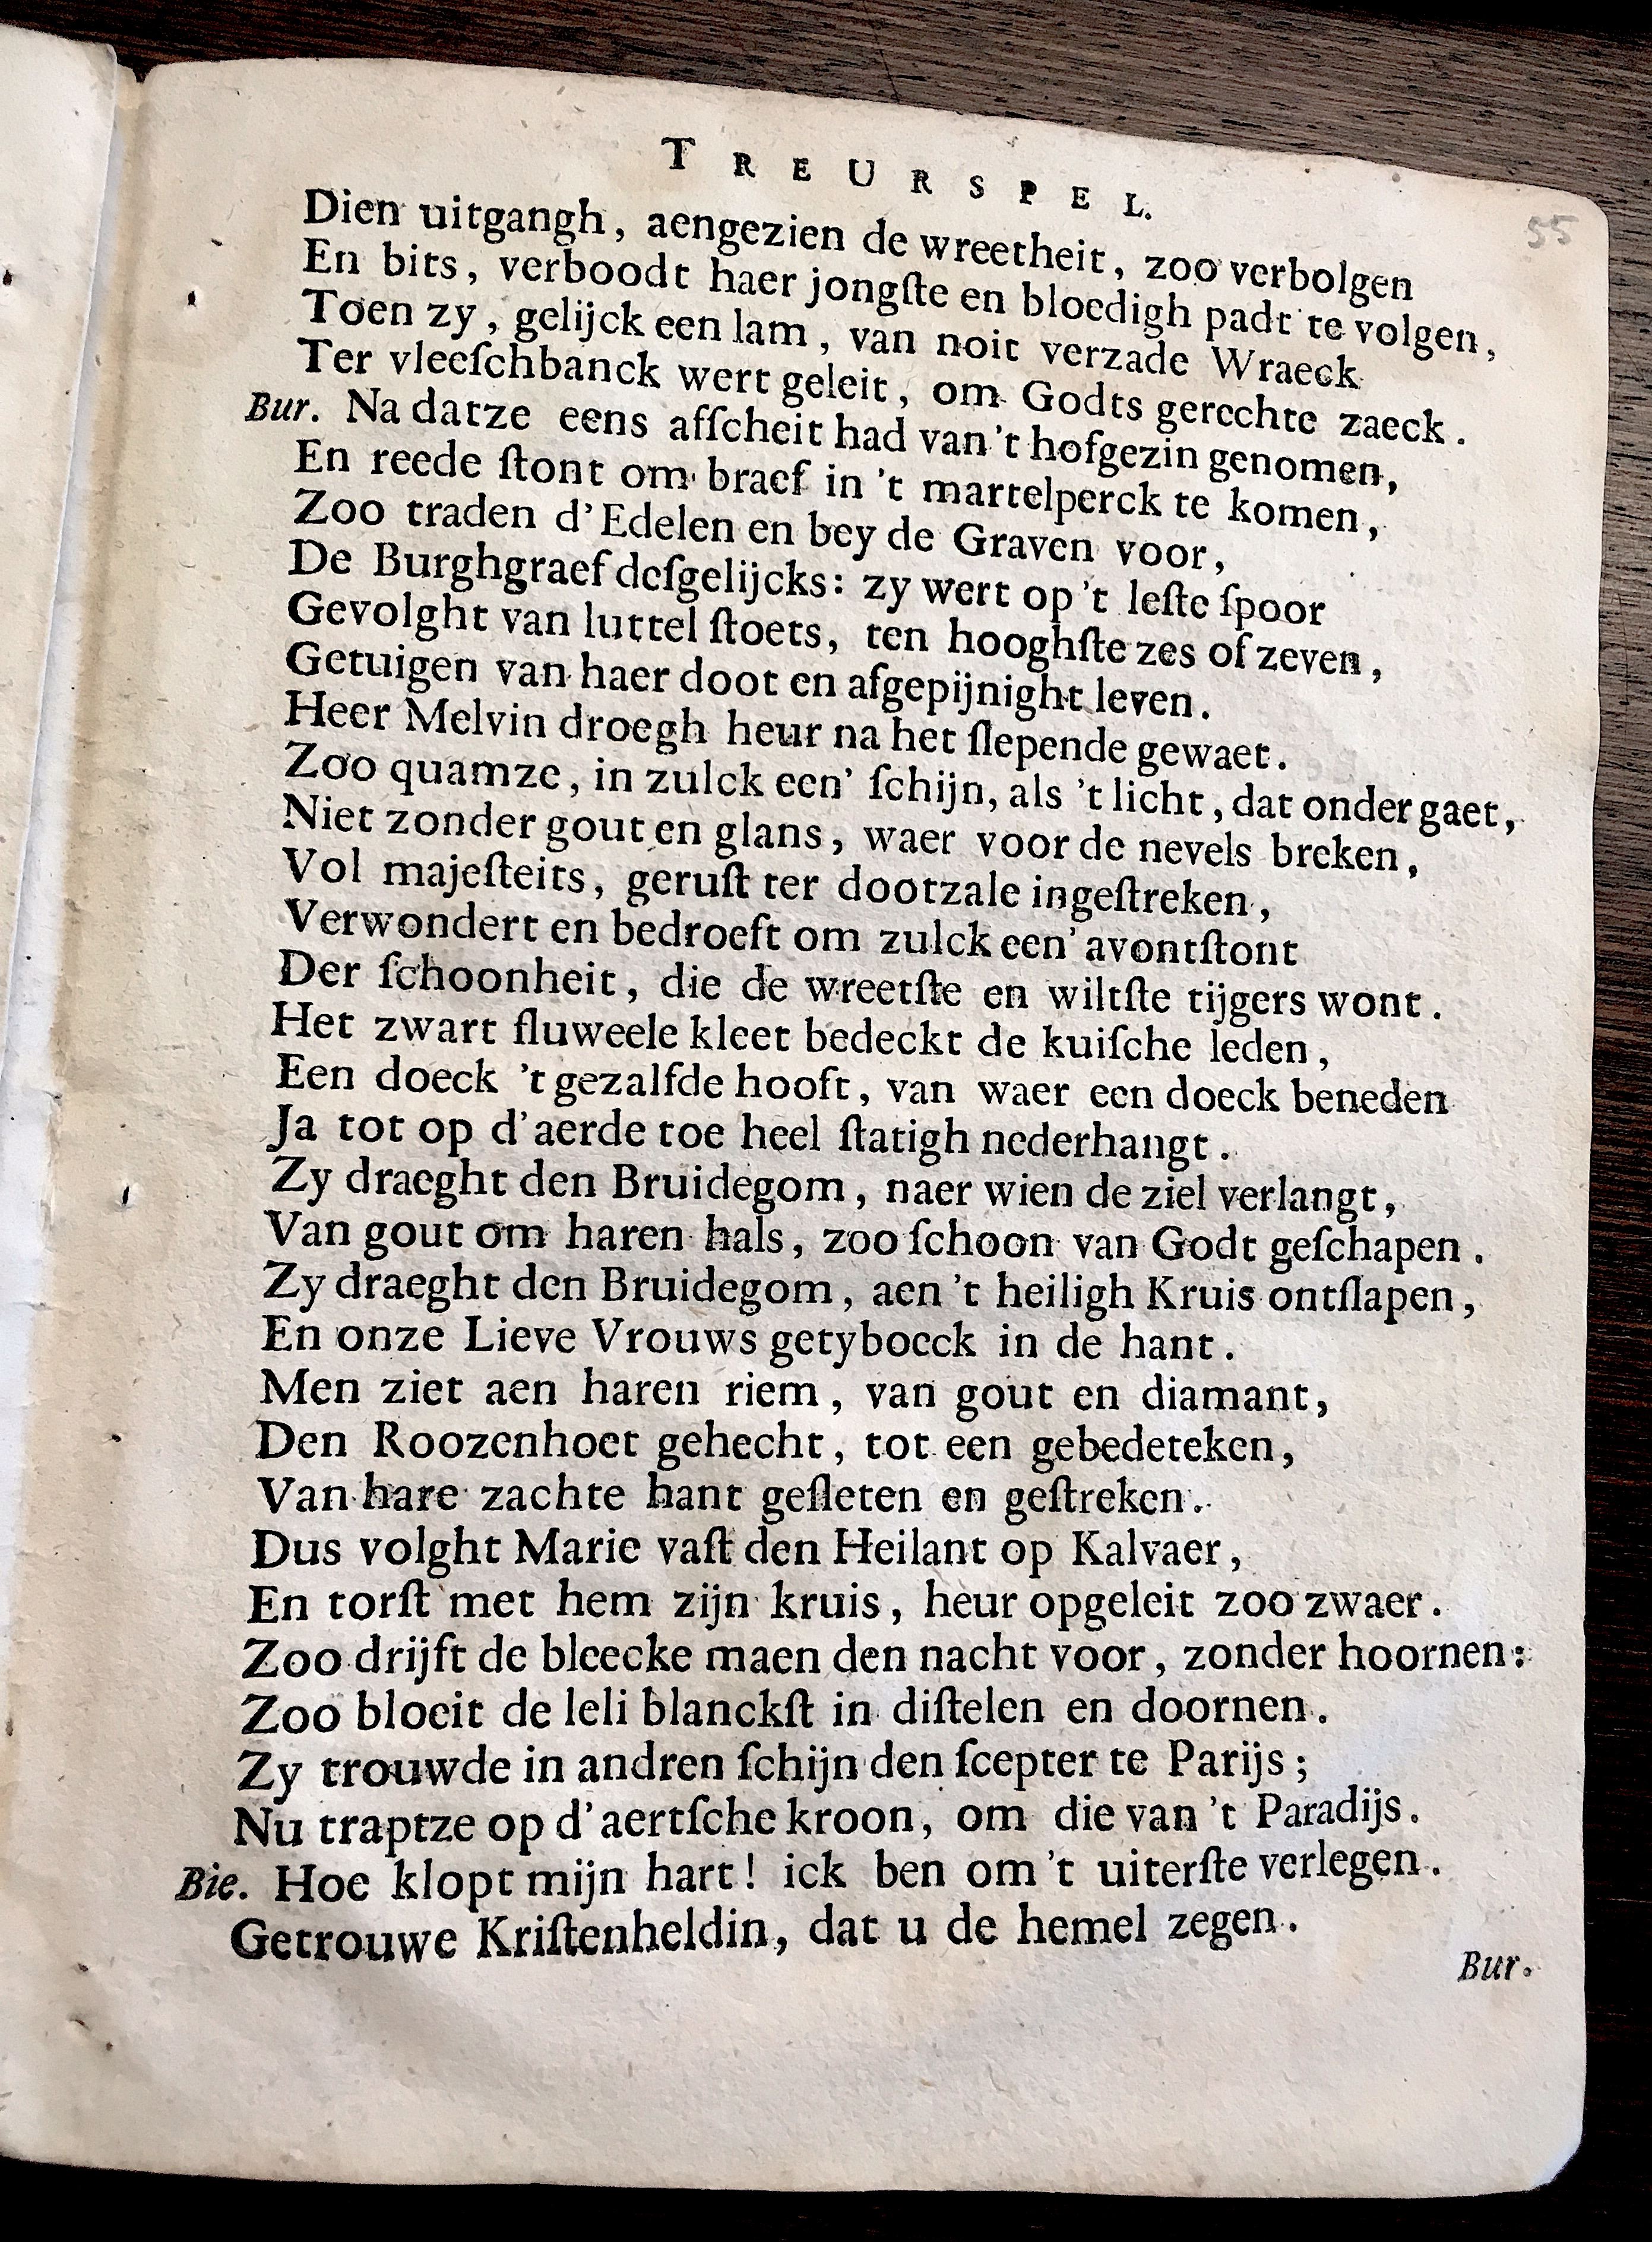 TREURSPEL.
55
Dien uitgangh, aengezien de wreetheit, zoo verbolgen
En bits, verboodt haer jongſte en bloedigh padt te volgen,
Toen zy, gelijck een lam, van noit verzade Wraeck
Ter vleeſchbanck wert geleit, om Godts gerechte zaeck.
Bur. Na datze eens afſcheit had van 't hofgezin genomen,
En reede ſtont om braef in 't martelperck te komen,
Zoo traden d'Edelen en bey de Graven voor,
De Burghgraef deſgelijcks: zy wert op 't leſte ſpoor
Gevolght van luttel ſtoets, ten hooghſte zes of zeven,
Getuigen van haer doot en afgepijnight leven.
Heer Melvin droegh heur na het ſlepende gewaet.
Zoo quamze, in zulck een' ſchijn, als 't licht, dat onder gaet,
Niet zonder gout en glans, waer voor de nevels breken,
Vol majeſteits, geruſt ter dootzale ingeſtreken,
Verwondert en bedroeft om zulck een' avontſtont
Der ſchoonheit, die de wreetſte en wiltſte tijgers wont.
Het zwart fluweele kleet bedeckt de kuiſche leden,
Een doeck 't gezalfde hooft, van waer een doeck beneden
Ja tot op d'aerde toe heel ſtatigh nederhangt.
Zy draeght den Bruidegom, naer wien de ziel verlangt,
Van gout om haren hals, zoo ſchoon van Godt geſchapen.
Zy draeght den Bruidegom, aen 't heiligh Kruis ontſlapen,
En onze Lieve Vrouws getyboeck in de hant.
Men ziet aen haren riem, van gout en diamant,
Den Roozenhoet gehecht, tot een gebedeteken,
Van hare zachte hant geſleten en geſtreken.
Dus volght Marie vaſt den Heilant op Kalvaer,
En torſt met hem zijn kruis, heur opgeleit zoo zwaer.
Zoo drijft de bleecke maen den nacht voor, zonder hoornen:
Zoo bloeit de leli blanckſt in diſtelen en doornen.
Zy trouwde in andren ſchijn den ſcepter te Parijs;
Nu traptze op d'aertſche kroon, om die van 't Paradijs.
Bie. Hoe klopt mijn hart! ick ben om 't uiterſte verlegen.
Getrouwe Kriſtenheldin, dat u de hemel zegen.
Bur.